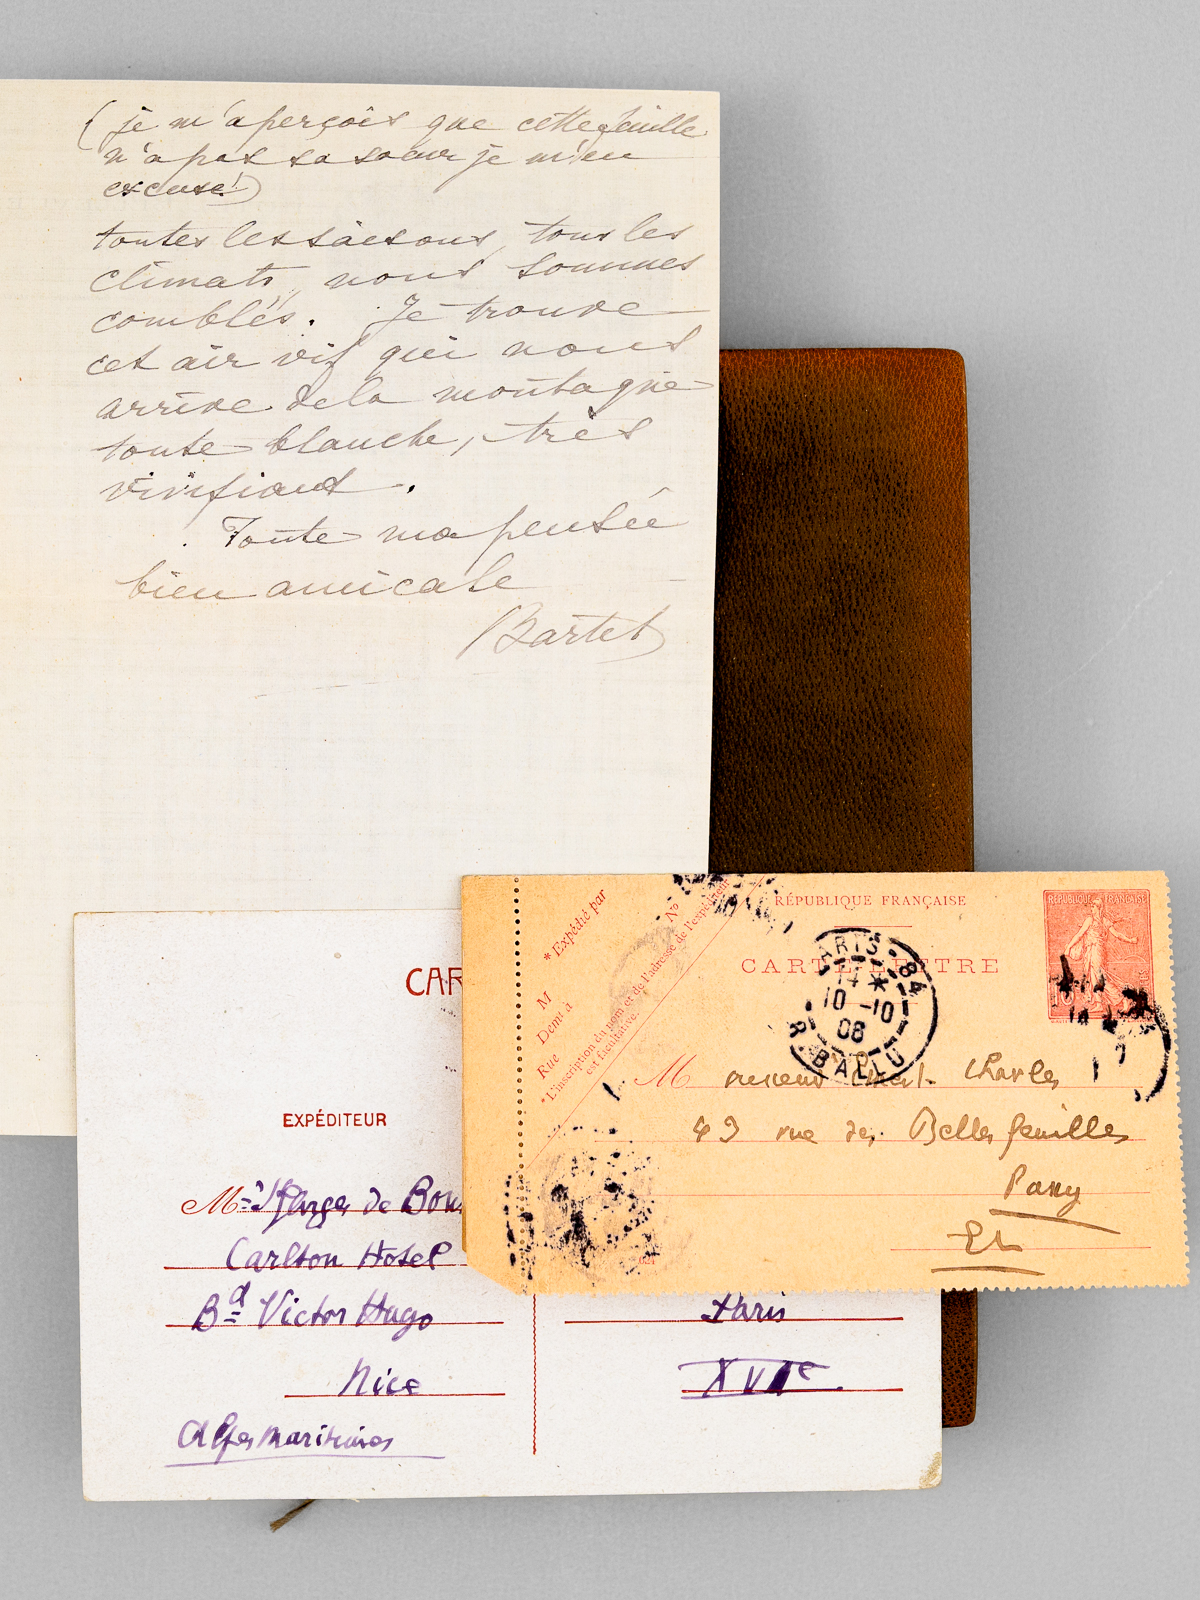 (je m'aperçois que cette feuille
n'a pas sa soeur je m'en
excuse!)
toutes les saisons, tous les
climats, nous sommes
comblés. Je trouve
cet air vif qui nous
arrive de la montagne
toute blanche, très
vivifiant.
Toute ma pensée
bien amicale
Bartet
CAR
EXPÉDITEUR
de
Carlton Hotel
Bd Victor Hugo
Nice
Alpes maritimes
Paris
XVIe.
* Expédié par
M
Demt à
Rue
No
* L'inscription du nom et de l'adresse de l'expéditeur
est facultative.
RÉPUBLIQUE FRANÇAISE
CARTE-LETTRE
REPUBLIQUE FRANÇAISE
10
PARIS 84
14 *
10-10
08
R. BALLU
M Charles
43 rue des Belles feuilles